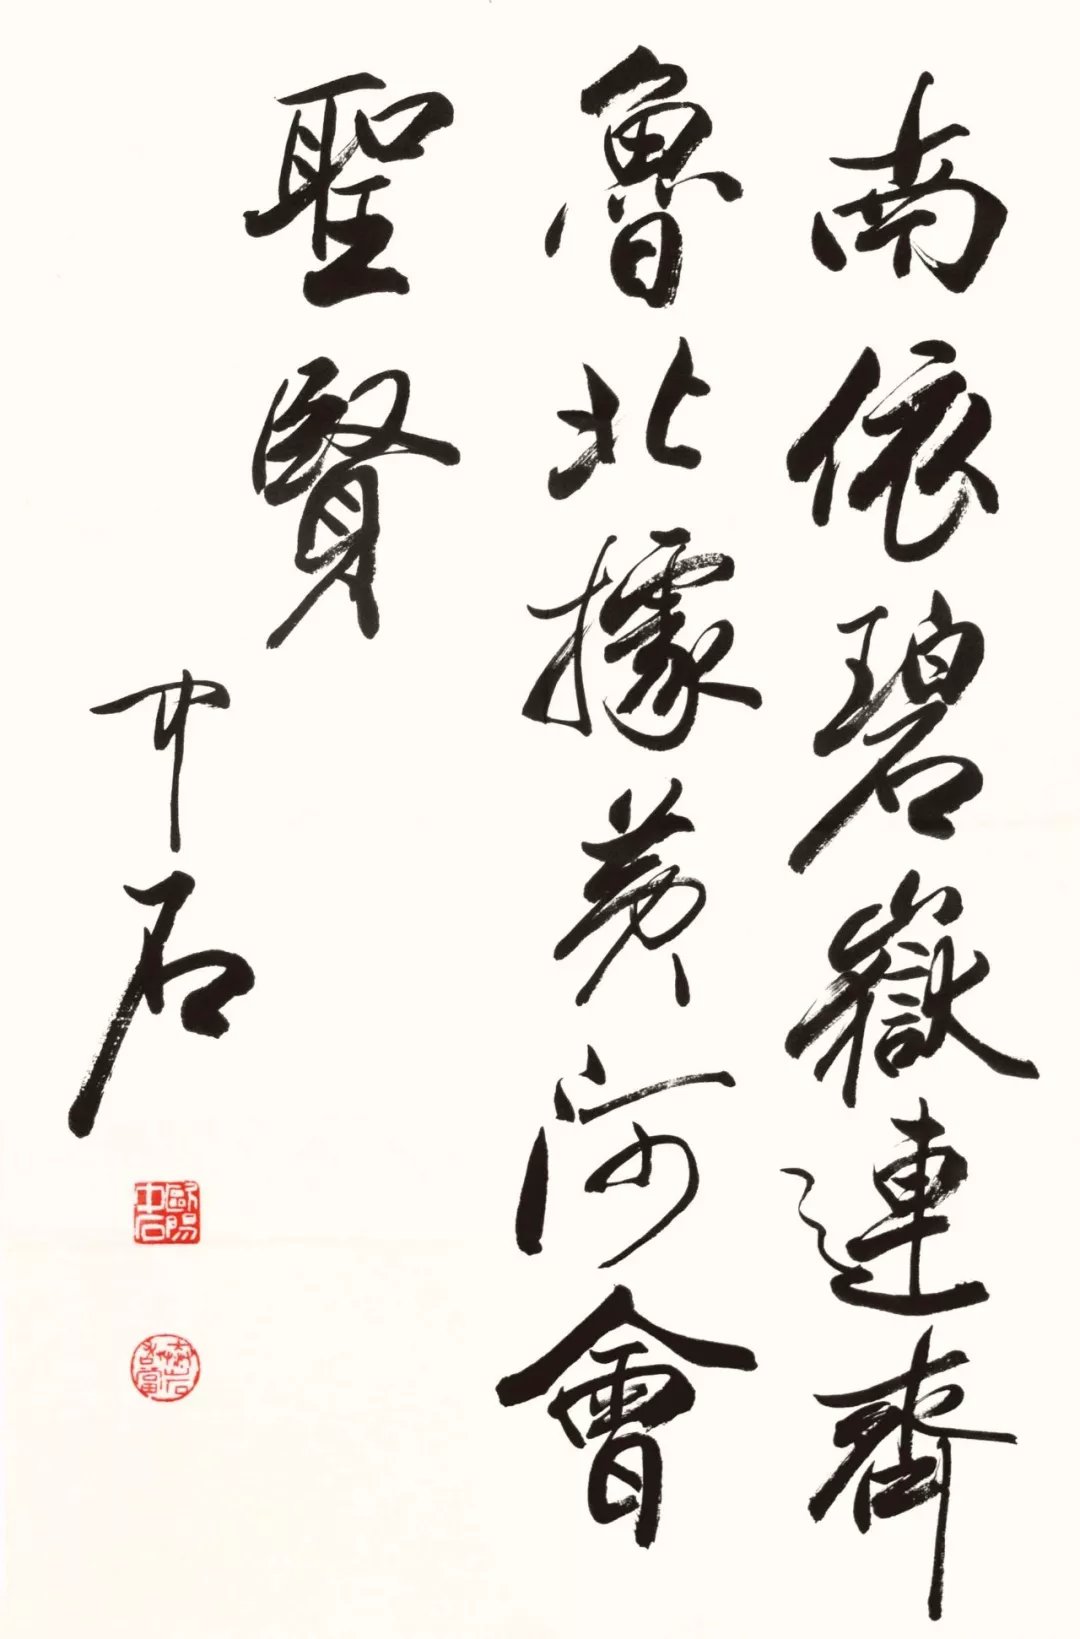 南依碧嶽連齊
魯北據黄河會
聖賢
中石
歐陽中石